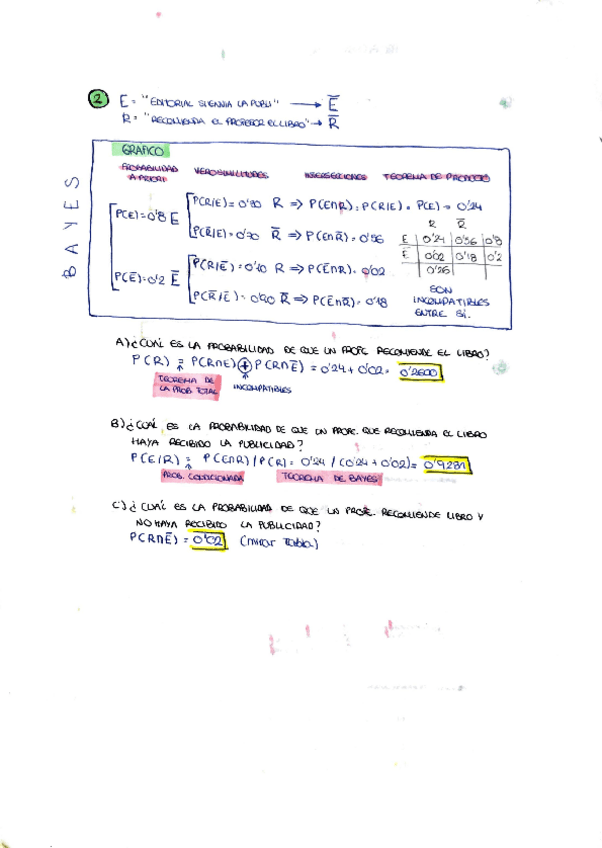 ② E = "EDITORIAL SI ENVIA LA PUBLI" → E̅
R = "RECOMIENDA EL PROFESOR EL LIBRO" → R̅
BAYES
GRAFICO
PROBABILIDAD A PRIORI VEROSIMILITUDES INSERSECIONES TEOREMA DE PRODUCTO
P(R/E) = 0'30 R ⇒ P(E∩R) = P(R/E) · P(E) = 0'24
P(E) = 0'8 E
P(R̅/E) = 0'70 R̅ ⇒ P(E∩R̅) = 0'56
P(R/E̅) = 0'10 R ⇒ P(E̅∩R) = 0'02
P(E̅) = 0'2 E̅
P(R̅/E̅) = 0'90 R̅ ⇒ P(E̅∩R̅) = 0'18
R R̅
E 0'24 0'56 0'8
E̅ 0'02 0'18 0'2
0'26
SON
INCOMPATIBLES
ENTRE SÍ.
A) ¿CUAL ES LA PROBABILIDAD DE QUE UN PROFE. RECOMIENDE EL LIBRO?
P(R) = P(R∩E) + P(R∩E̅) = 0'24 + 0'02 = 0'2600
TEOREMA DE LA PROB. TOTAL INCOMPATIBLES
B) ¿CUÁL ES LA PROBABILIDAD DE QUE UN PROFE. QUE RECOMIENDA EL LIBRO
HAYA RECIBIDO LA PUBLICIDAD?
P(E/R) = P(E∩R) / P(R) = 0'24 / (0'24 + 0'02) = 0'9231
PROB. CONDICIONADA TEOREMA DE BAYES
C) ¿CUÁL ES LA PROBABILIDAD DE QUE UN PROFE. RECOMIENDE LIBRO Y
NO HAYA RECIBIDO LA PUBLICIDAD?
P(R∩E̅) = 0'02 (mirar Tabla)